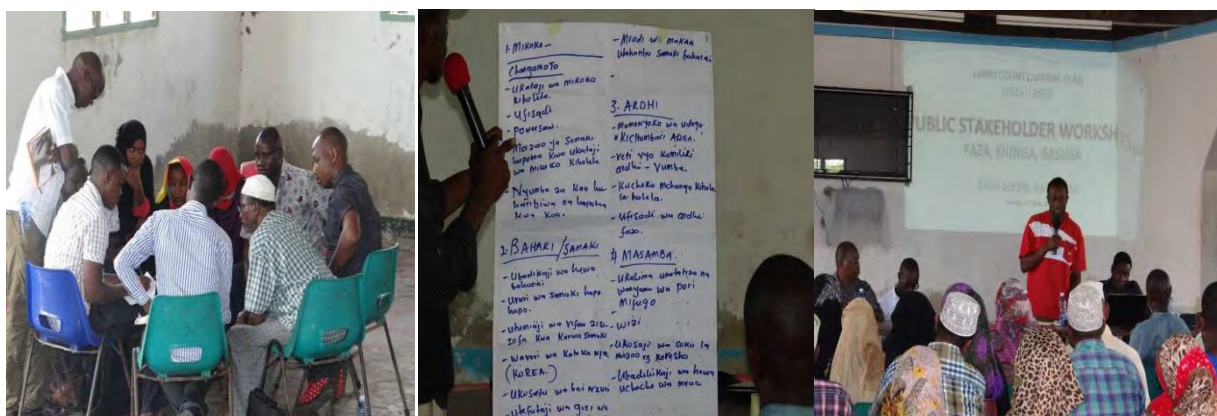 1. MIKOKO -
Changamoto
- Ukataji wa mikoko
kiholela.
- Ufisadi
- Mazao ya Samaki
hupotea kwa ukataji
wa mikoko kiholela
Nyumba za Kaa hu
haribiwa na hupotea
kwa Kaa.
2. BAHARI / SAMAKI
- Ubadilikaji wa hewa
baharini
- Uvuvi wa Samaki hapo
hapo.
- Utumiaji wa vifaa
kwa Kuvua Samaki
- Wavuvi wa Kutoka nje
(KOREA.)
- Ukosefu wa bei nzuri
- Utafutaji wa gesi
- Mradi wa makaa
utaharibu Samaki baharini
-
3. ARDHI
- Momonyoko wa udogo
KICHUMBAI AREA.
- Veti vya Kumiliki
ardhi - Vumba.
- Kuchota Mchanga Kiholela
holela.
- Ufisadi wa ardhi
faza.
4 MASAMBA.
- Ukulima unatatizwa na
wanyama wa pori
Mifugo
- Wizi
- Ukosaji wa soko la
mazao eg Korosho
- Ubadilikaji wa hewa
uchache wa mvua
LAMU COUNTY SPATIAL PLAN
PUBLIC STAKEHOLDER WORKSH
FAZA, KIUNGA, BASUBA